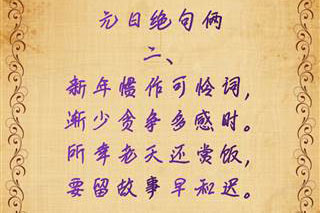 元日绝句俩
二、
新年惯作可怜词，
渐少贪争多感时。
所幸老天还赏饭，
要留故事早和迟。